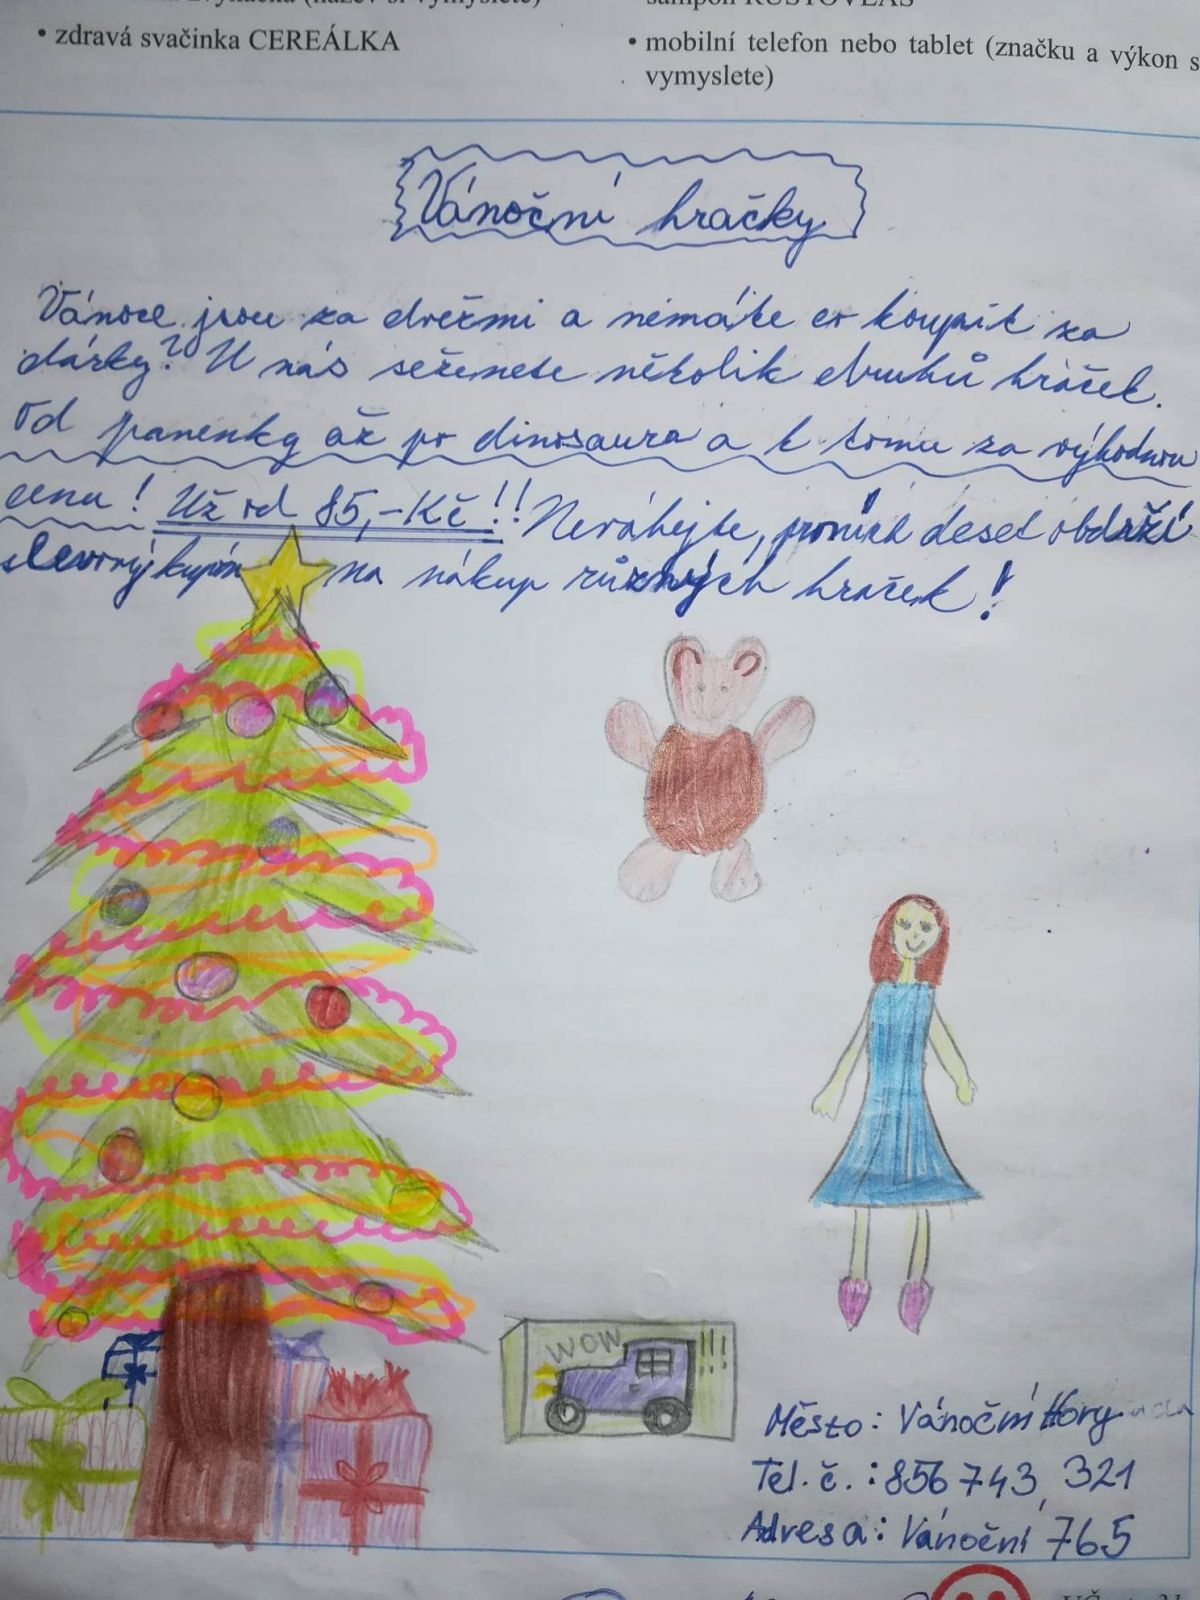 (název si vymyslete)
šampon
• zdravá svačinka CEREÁLKA
• mobilní telefon nebo tablet (značku a výkon s
vymyslete)
Vánoční hračky
Vánoce jsou za dveřmi a nemáte co koupit za
dárky? U nás seženete několik druhů hraček.
Od panenky až po dinosaura a k tomu za výhodnou
cenu! Už od 85,-Kč!!! Neváhejte, prvních deset obdrží
slevový kupón na nákup různých hraček!
WOW !!!
Město: Vánoční Hory
Tel. č.: 856 743 321
Adresa: Vánoční 765